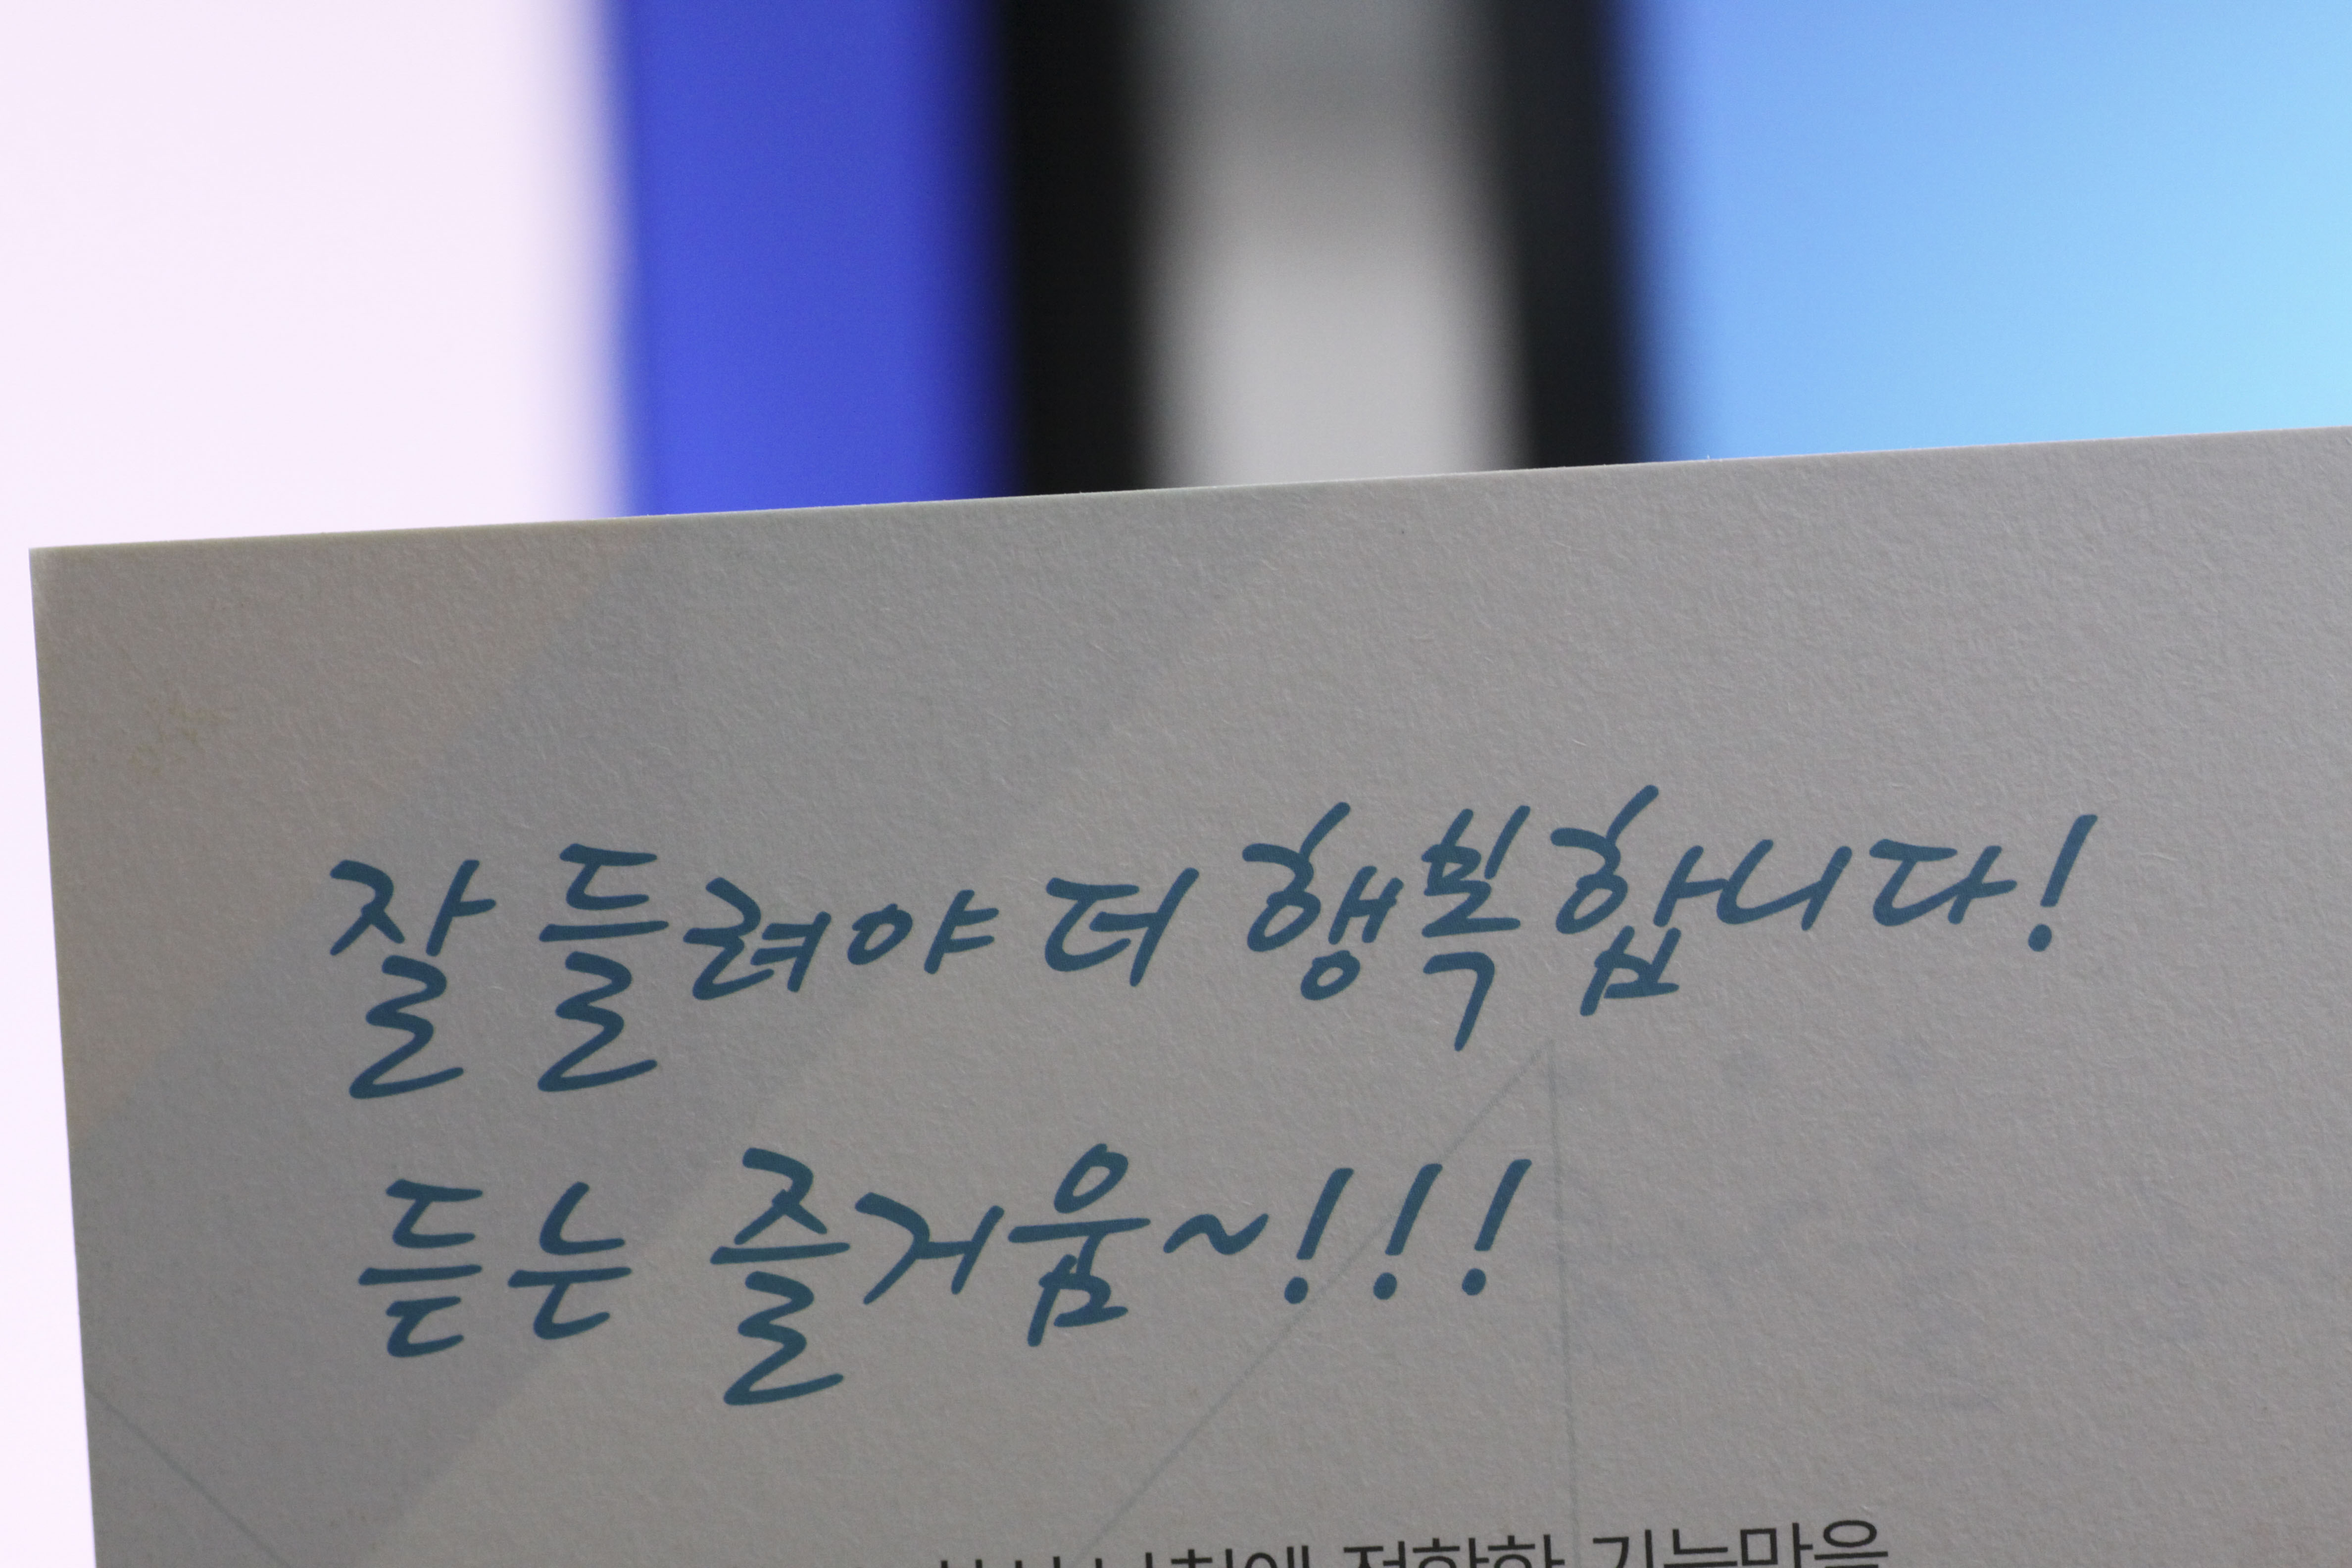 잘 들려야 더 행복합니다!
듣는 즐거움~!!!
기능만을